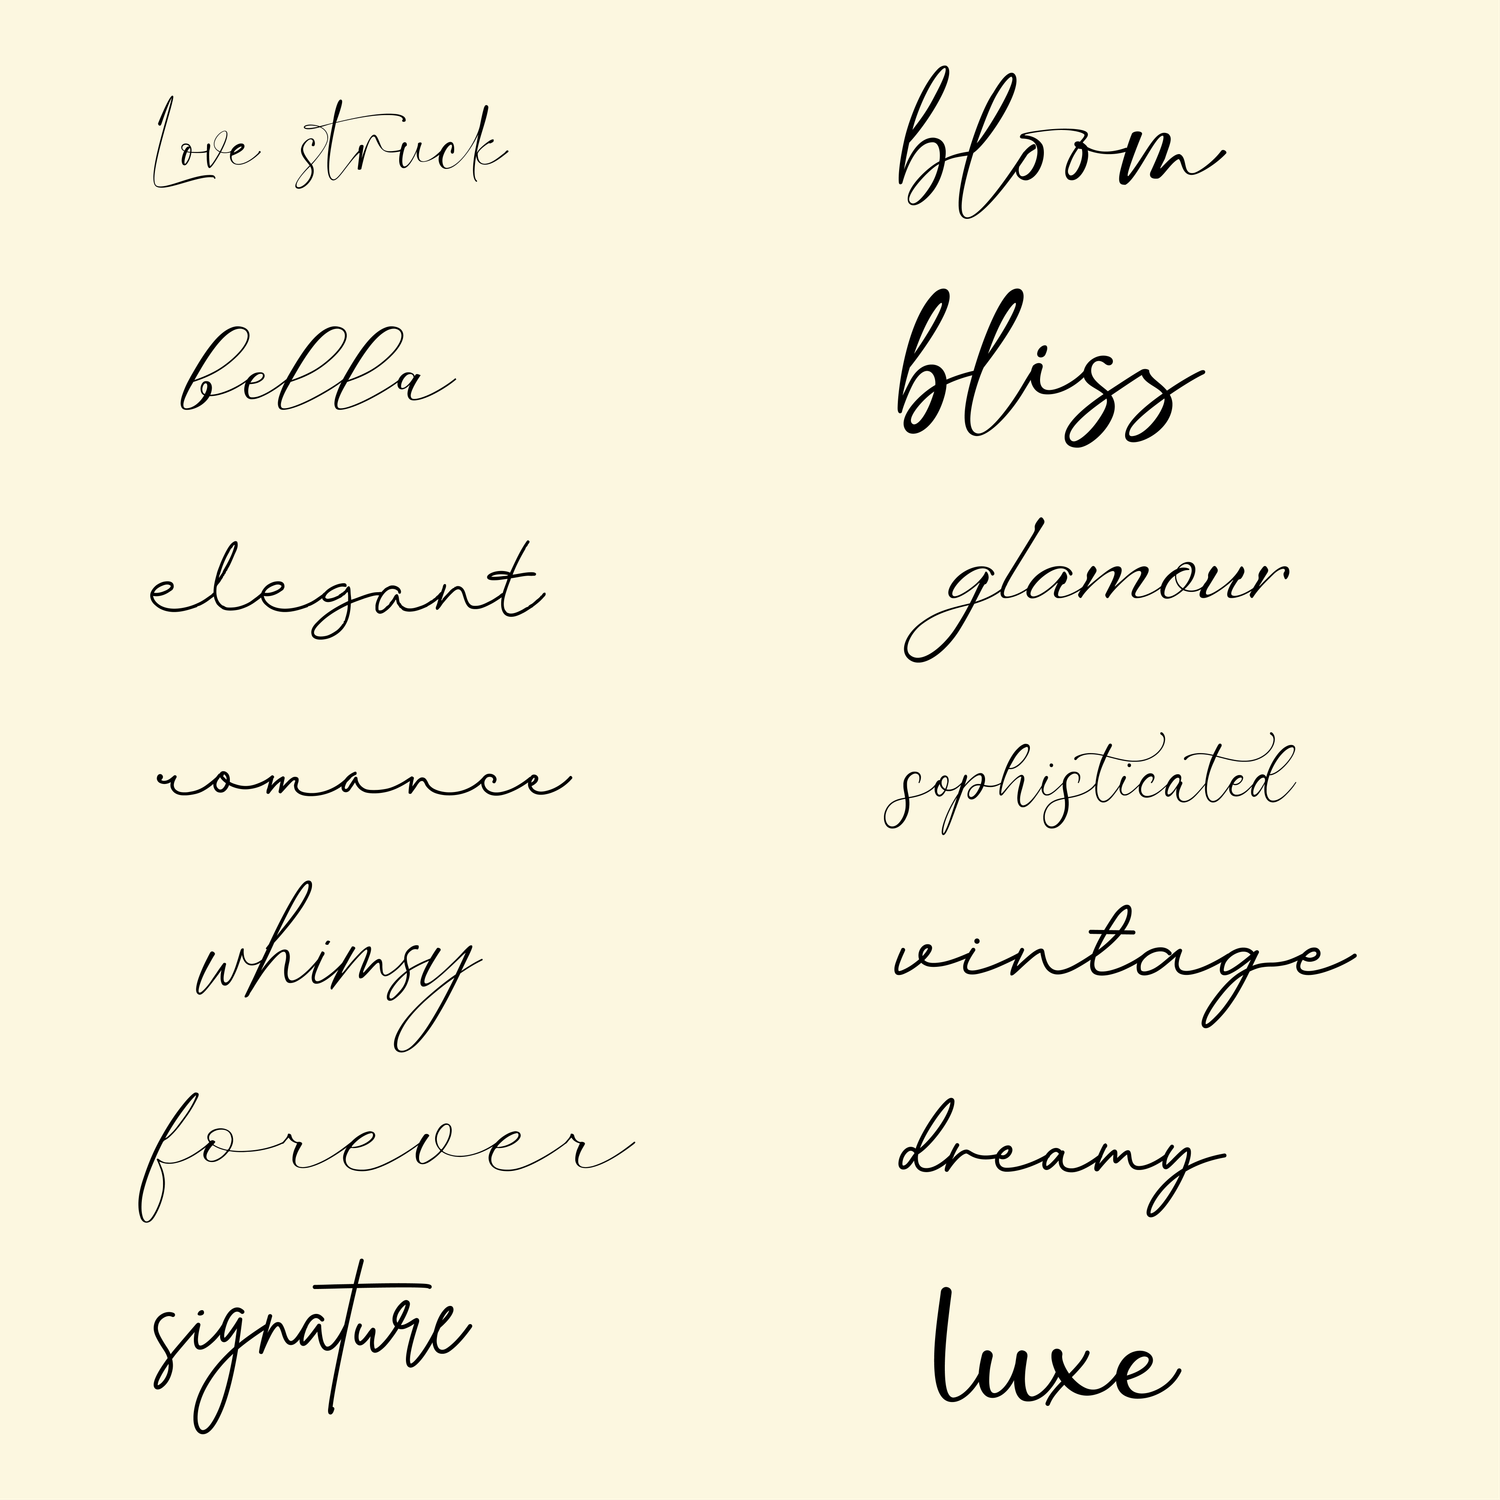 Love struck
bella
elegant
romance
whimsy
forever
signature
bloom
bliss
glamour
sophisticated
vintage
dreamy
luxe